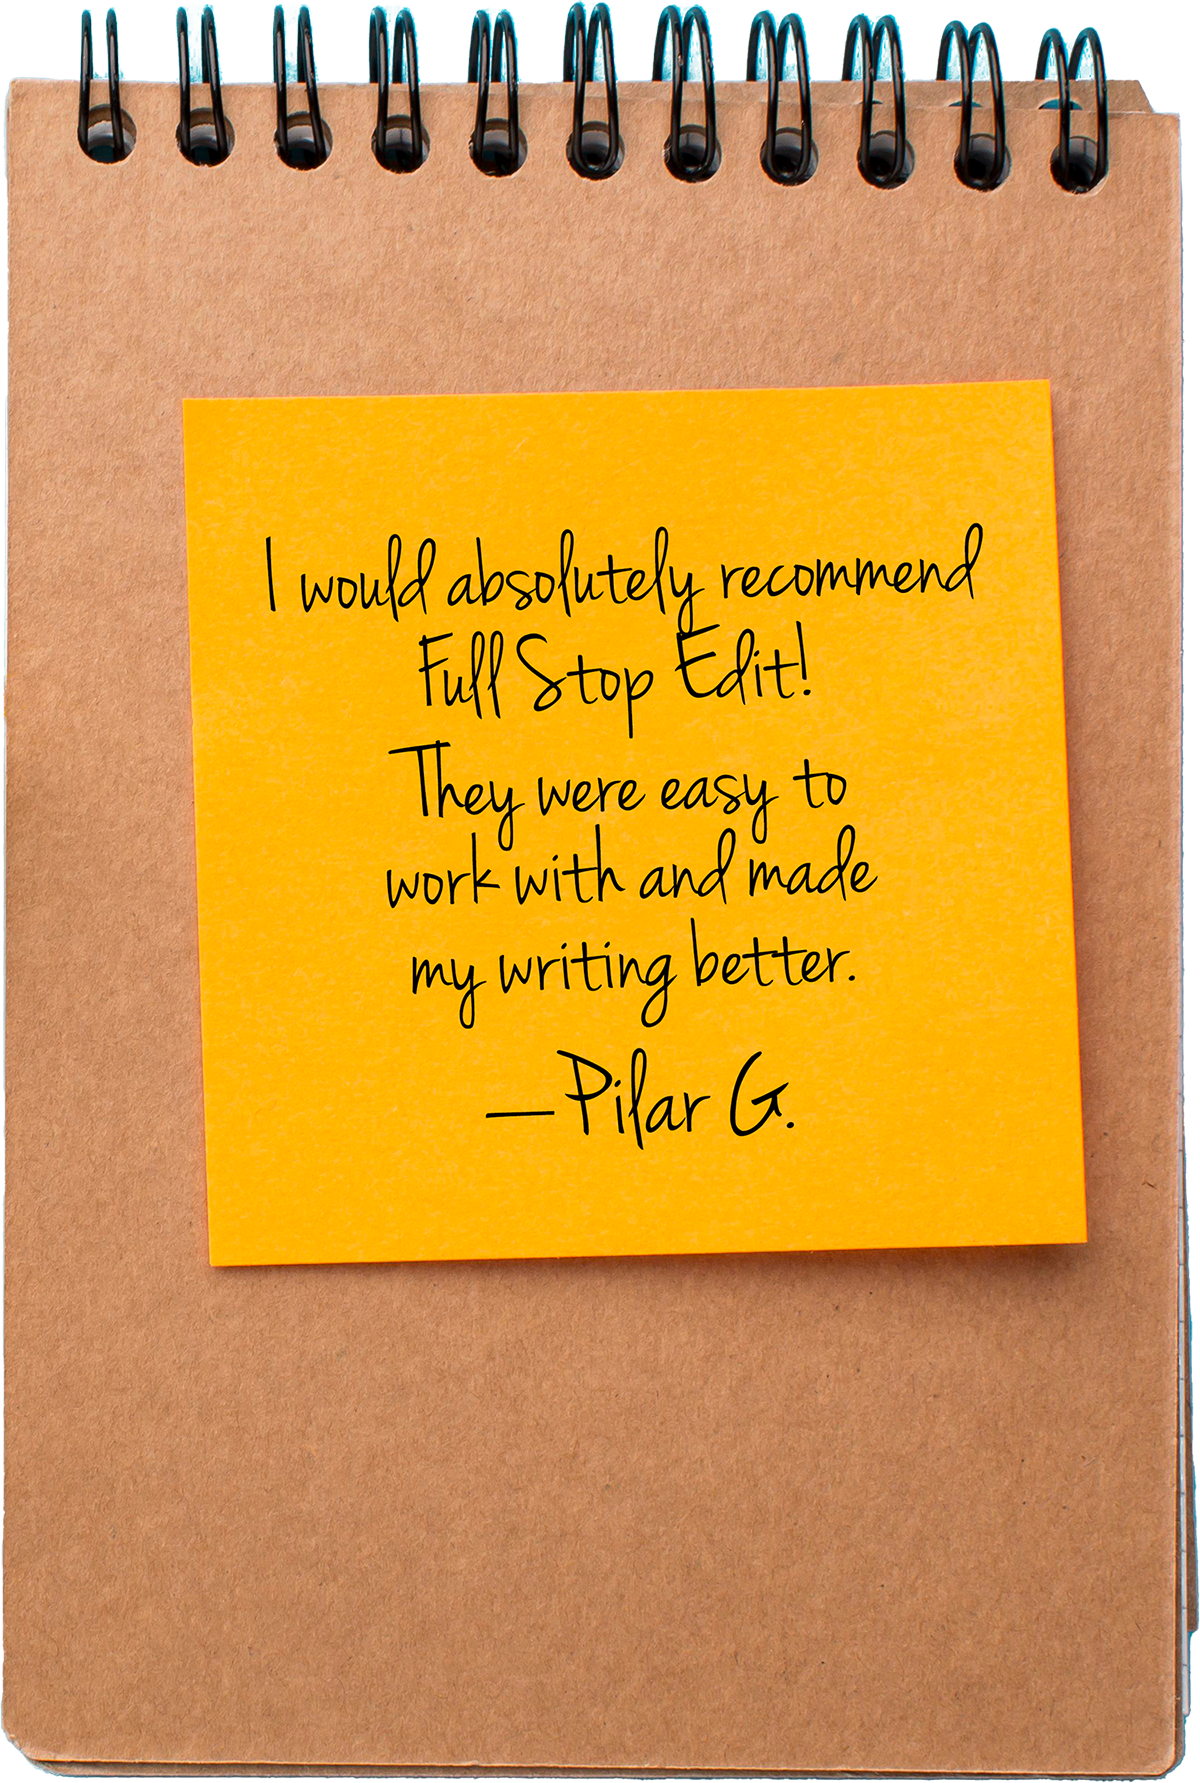 I would absolutely recommend
Full Stop Edit!
They were easy to
work with and made
my writing better.
—Pilar G.